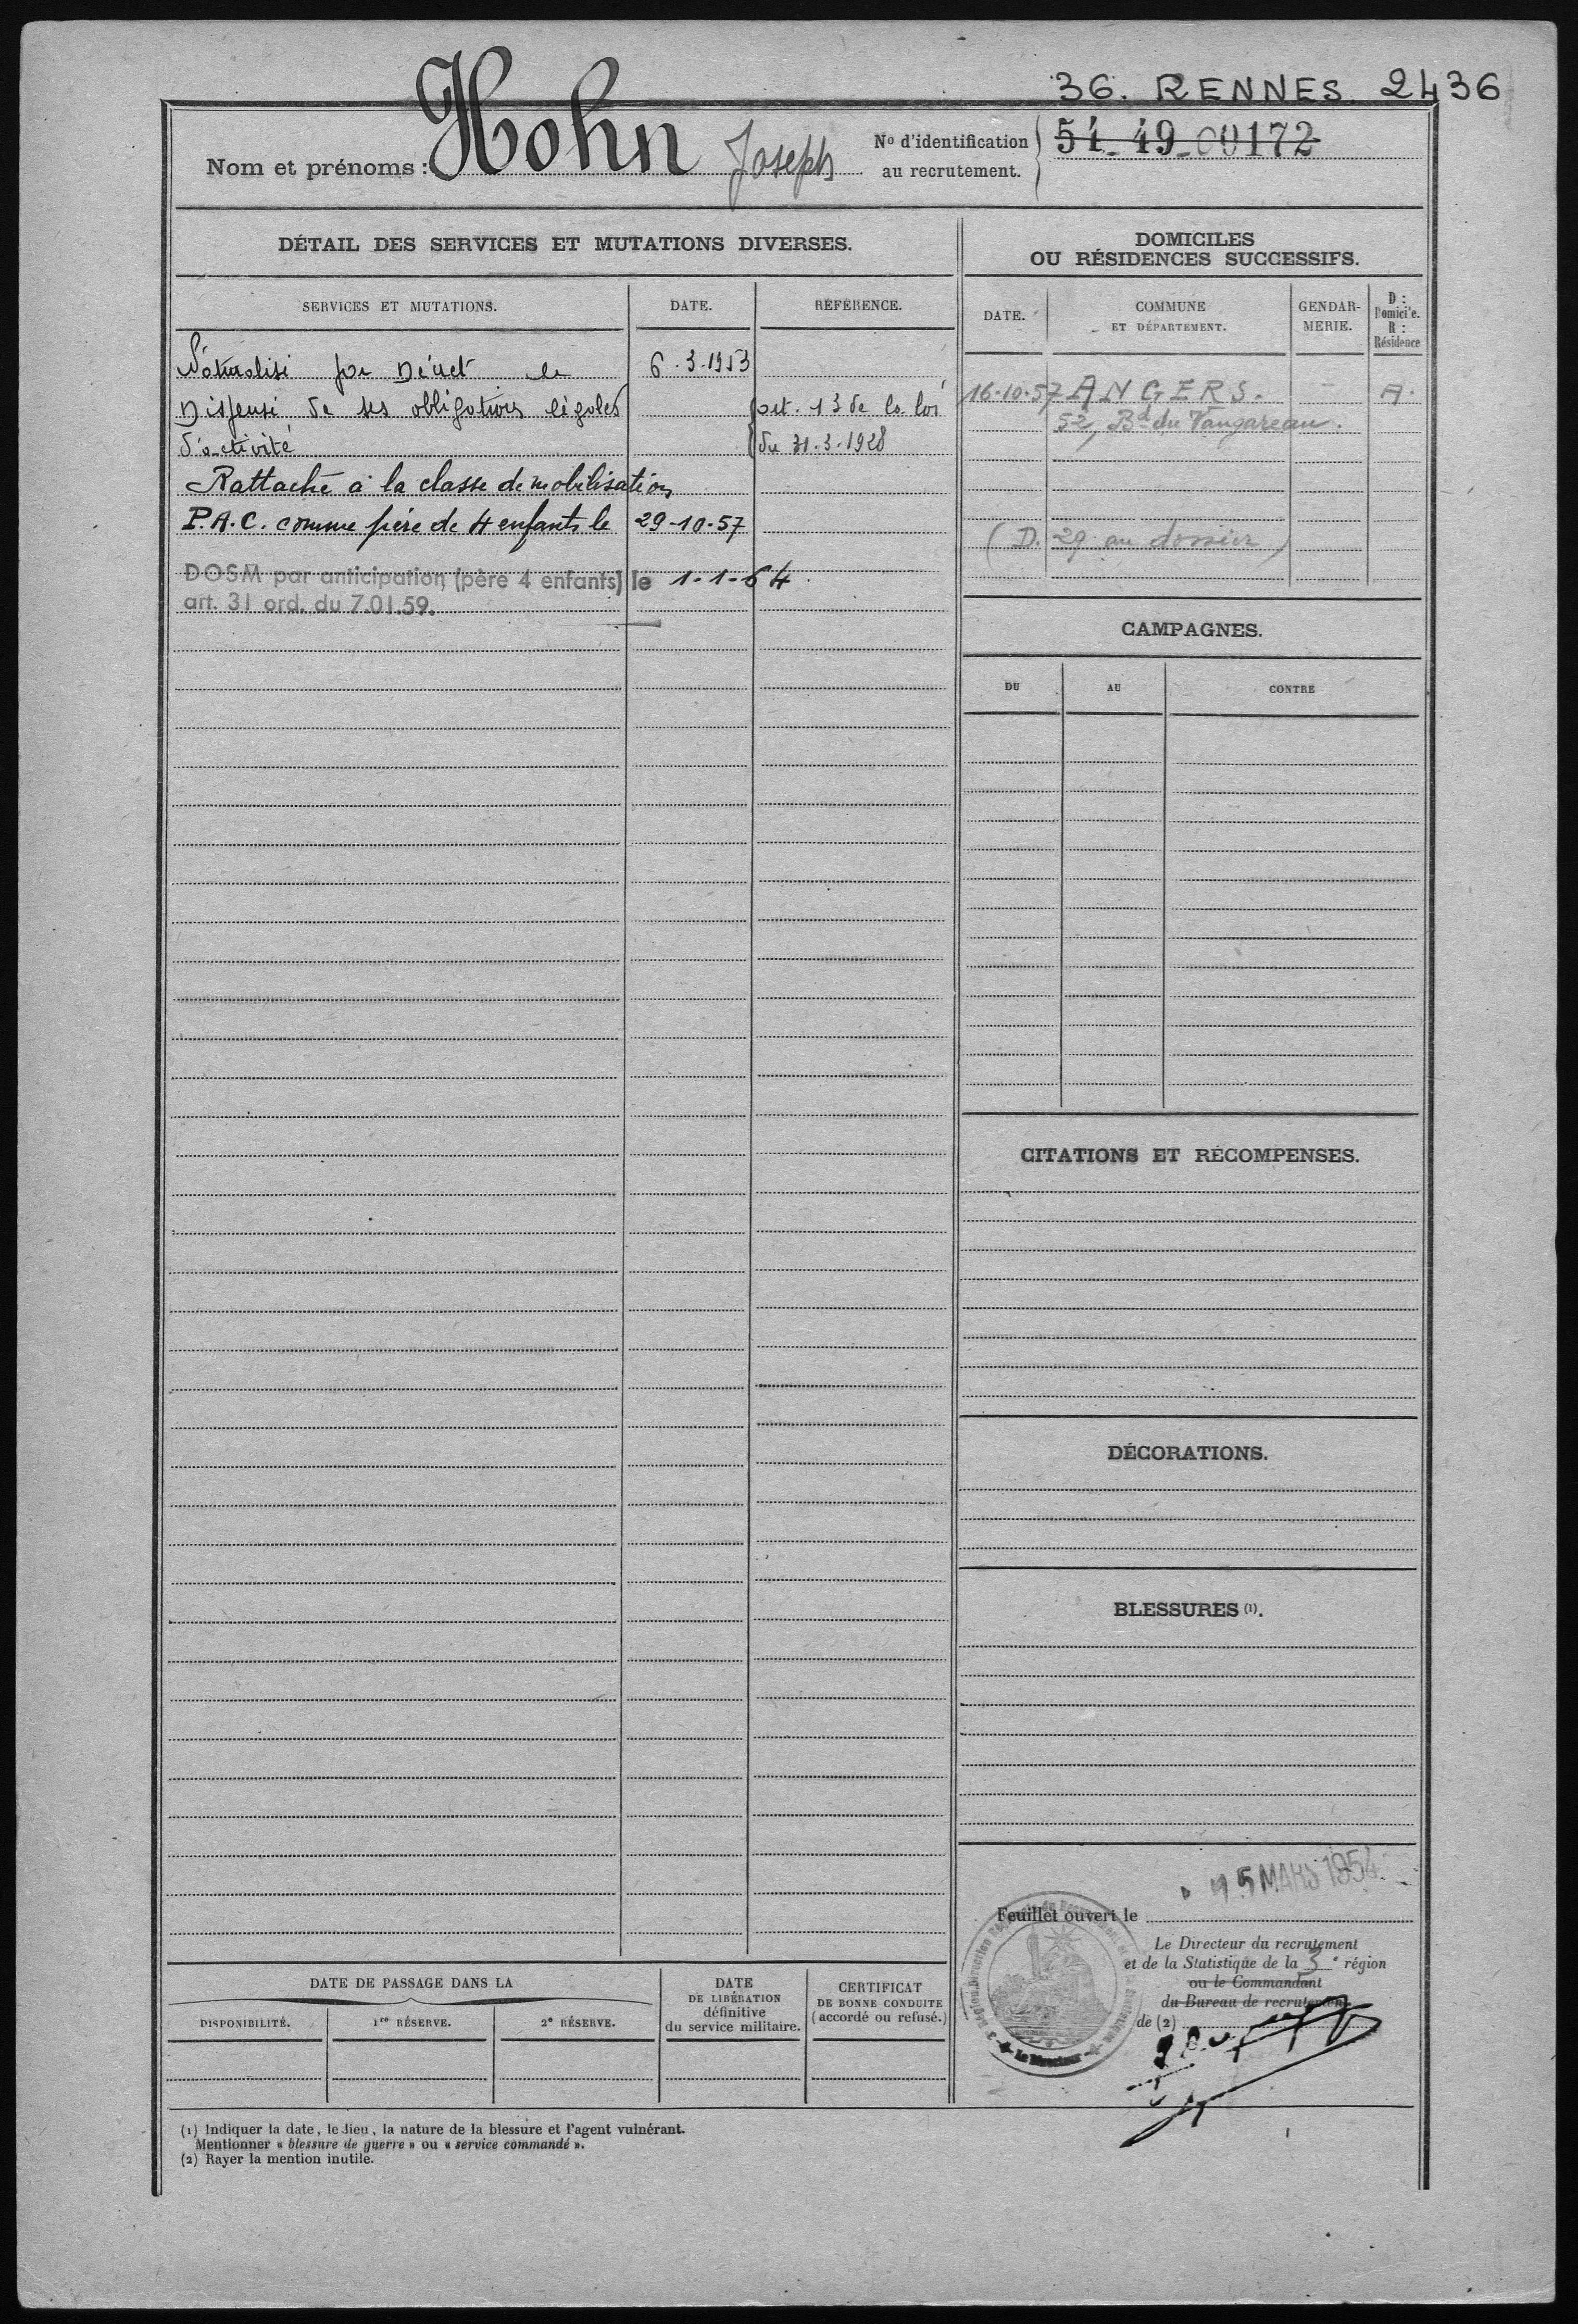 36. RENNES. 2436
Nom et prénoms : Hohn Joseph
N° d'identification au recrutement. 54-49-00172
DÉTAIL DES SERVICES ET MUTATIONS DIVERSES.
SERVICES ET MUTATIONS. DATE. RÉFÉRENCE.
Naturalisé par Décret le 6.3.1953
Dispensé de ses obligations légales art. 13 de la loi
d'activité du 31.3.1928
Rattaché à la classe de mobilisation
P.A.C. comme père de 4 enfants le 29-10-57
DOSM par anticipation (père 4 enfants) le 1-1-64
art. 31 ord. du 7.01.59.
DOMICILES
OU RÉSIDENCES SUCCESSIFS.
DATE. COMMUNE ET DÉPARTEMENT. GENDAR-MERIE. D : Domicile. R : Résidence
16-10-57 ANGERS. — A.
52, Bd du Vangareau.
(D. 29 au dossier)
CAMPAGNES.
DU AU CONTRE
CITATIONS ET RÉCOMPENSES.
DÉCORATIONS.
BLESSURES (1).
MARS 1954
Feuillet ouvert le
Le Directeur du recrutement
et de la Statistique de la 3e région
ou le Commandant
du Bureau de recrutement
de (2)
Le Directeur
DATE DE PASSAGE DANS LA
DISPONIBILITÉ. 1re RÉSERVE. 2e RÉSERVE.
DATE
DE LIBÉRATION
définitive
du service militaire.
CERTIFICAT
DE BONNE CONDUITE
(accordé ou refusé.)
(1) Indiquer la date, le lieu, la nature de la blessure et l'agent vulnérant.
Mentionner « blessure de guerre » ou « service commandé ».
(2) Rayer la mention inutile.